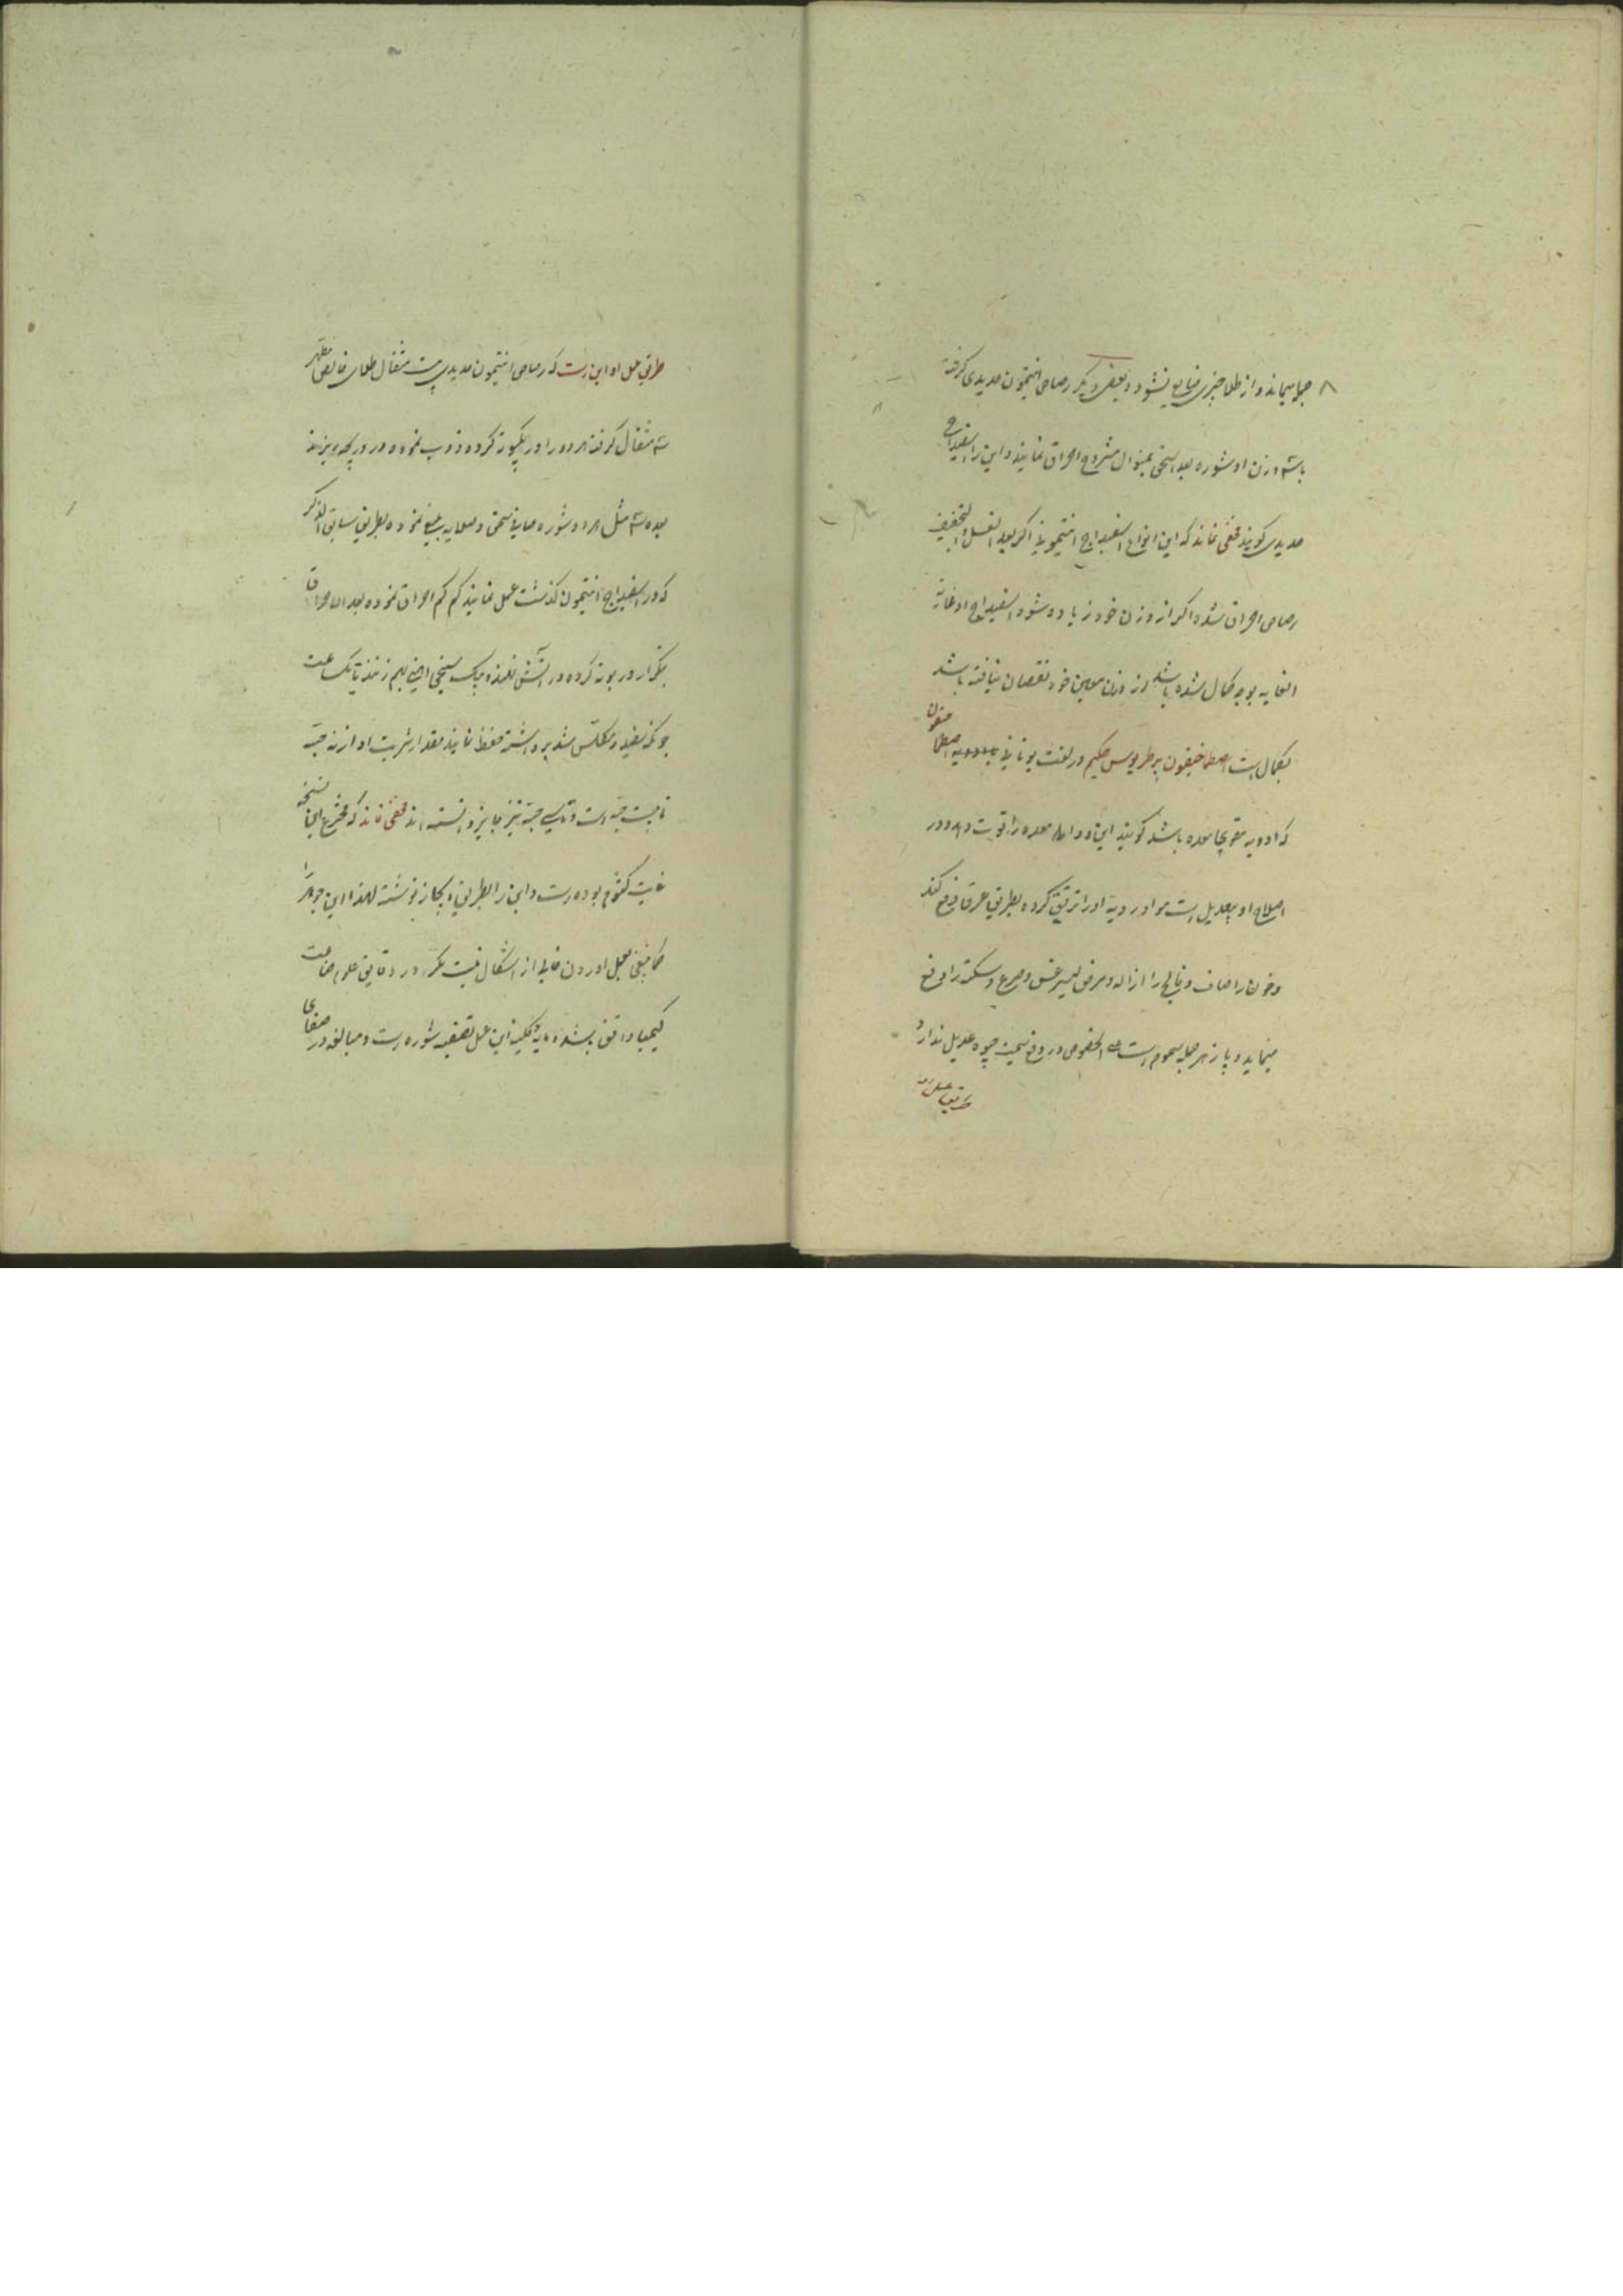 جدا میماند و از طلا چیزی ضایع نشود و بعضی دیگر رصاص انتیمون حدیدی گرفته
با سه وزن او شوره بعد السحق بمنوال مشروح احراق نمایند و این را اسفیداج
حدیدی گویند مخفی نماند که این انواع اسفیداج انتیمونی اگر بعد الغسل والتجفیف
رصاص احراق شده اگر از وزن خود زیاده شود اسفیداج او غایة
الغایه بوجه کمال شده باشد و از وزن معین خود نقصان نیافته باشد
بکمال است اصطماخیقون پرطریوس حکیم در لغت یونانی اصطماخیقون
که ادویه مقوی معده باشد گویند این دوا معده را قوت دهد و در
اصلاح او بیعدیل است مواد ردیه او را ترقیق کرده بطریق عرق دفع کند
و خون را صاف و فالج را ازاله و مرض لیسرغس و صرع و سکته را دفع
مینماید و پازهر جمله سموم است علی الخصوص در دفع سمیت جیوه عدیل ندارد
طریق عمل او
طریق عمل او این است که رصاص انتیمون حدیدی بیست مثقال طلای خالص مطهر
سه مثقال گرفته هر دو را در یکبوته کرده ذوب نموده در ریجه بریزند
بعده سه مثل هر دو شوره صافی سحق و صلایه بلیغ نموده بطریق سابق الذکر
که در اسفیداج انتیمون گذشت عمل نمایند کم کم احراق نموده بعد الاحراق
بتکرار در بوته کرده در آتش نهند و بیک سیخی آهنی بهم زنند تا یکساعت
چونکه سفید و مکلس شد برداشته حفظ نمایند مقدار شربت او از نه حبه
تا بیست حبه است و تا سی حبه نیز جایز دانسته اند مخفی نماند که مخترع این نسخه
غایت کتوم بوده است و این را بطریق ایجاز نوشته لهذا این جوهر را
کما ینبغی بعمل آوردن خالی از اشکال نیست مگر در دقایق علوم صناعت
کیمیا واقف باشد و مایه کلیه این عمل تصفیه شوره است و مبالغه در صفای